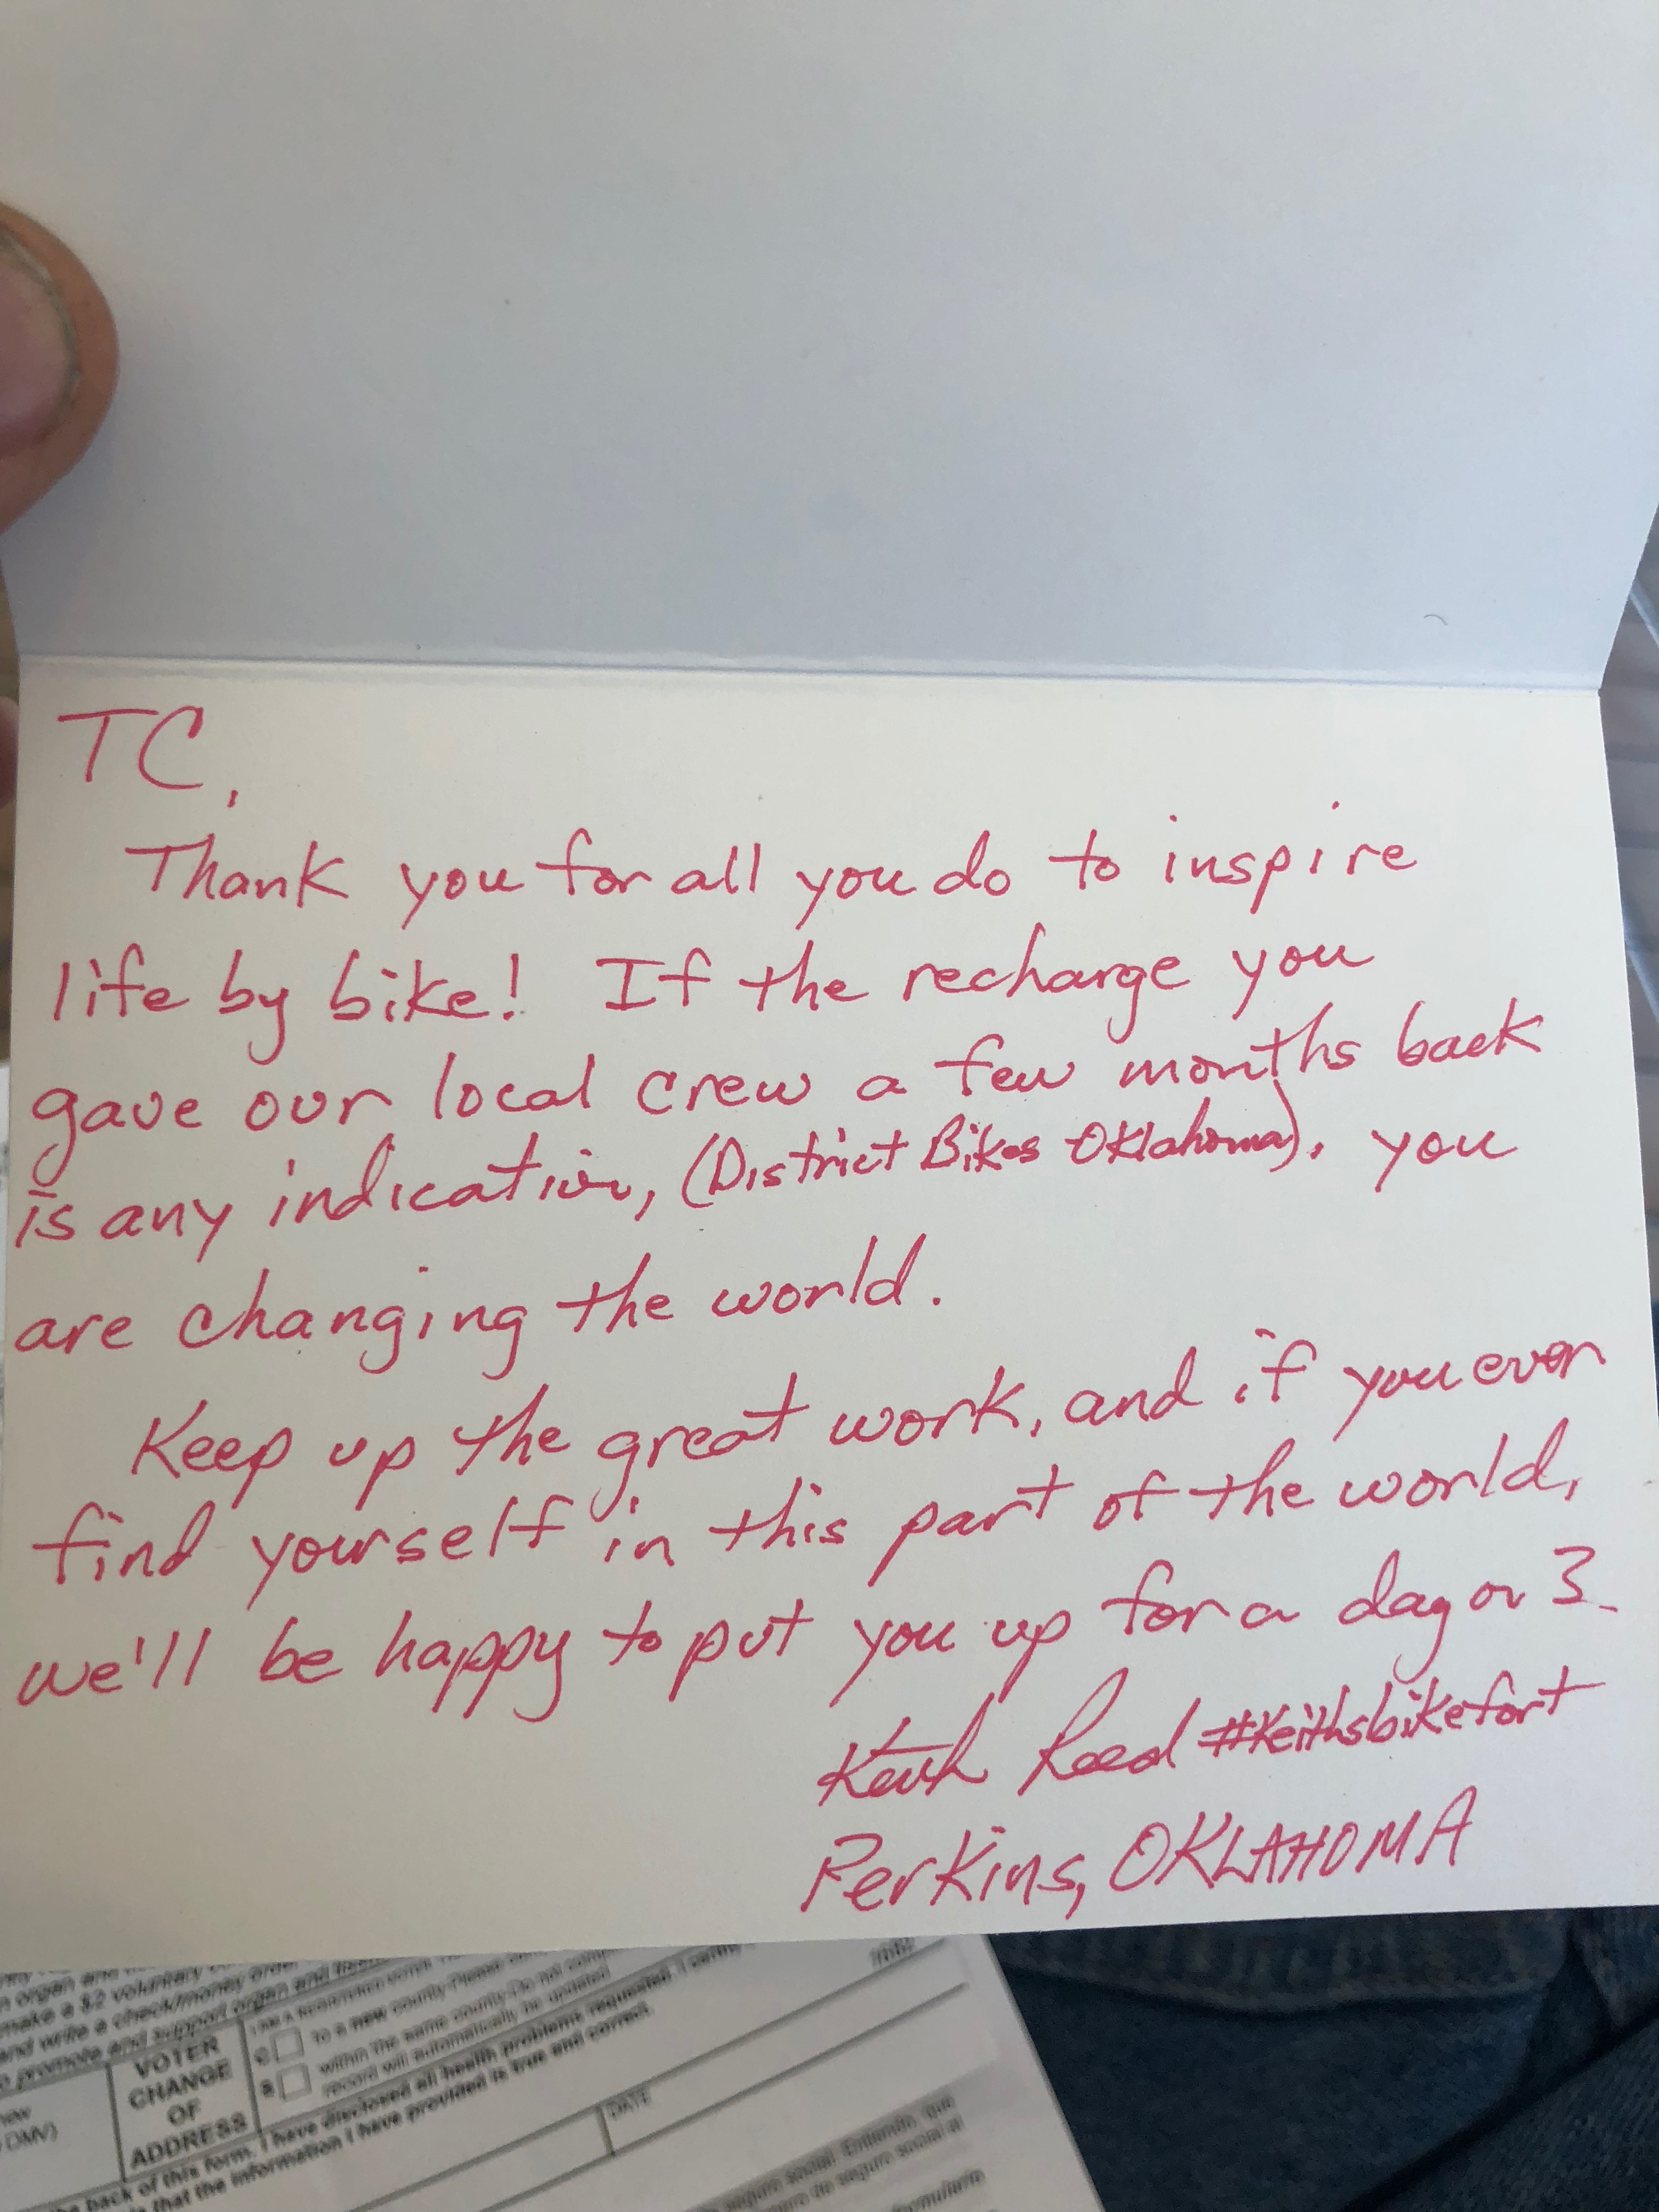 TC,
Thank you for all you do to inspire
life by bike! If the recharge you
gave our local crew a few months back
is any indication, (District Bikes Oklahoma), you
are changing the world.
Keep up the great work, and if you ever
find yourself in this part of the world,
we'll be happy to put you up for a day or 3.
Keith Reed #Keithsbikefort
Perkins, OKLAHOMA
make a $2 voluntary
and write a check/money order
promote and support organ and
VOTER
CHANGE
OF
ADDRESS
to a new county
within the same county
record will automatically be updated
DMV)
back of this form. I have disclosed all health problems requested. I certify
that the information I have provided is true and correct.
DATE
seguro social. Entiendo que
de seguro social al
formulario